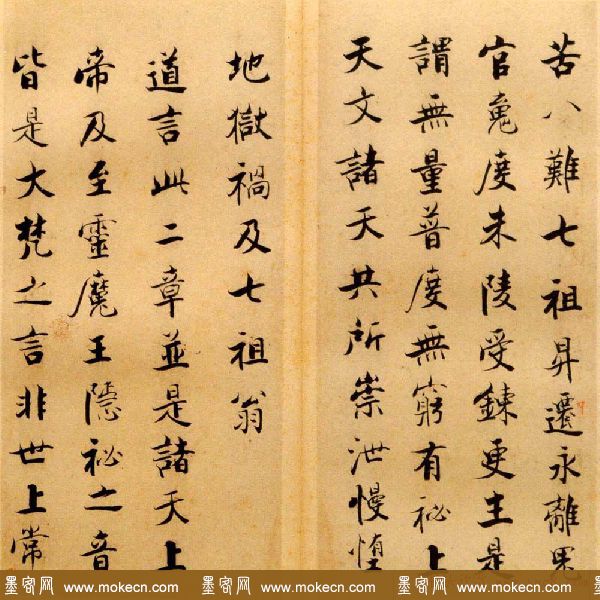 苦八難七祖昇遷永離鬼
官魂度未陵受鍊更生是
謂無量普度無窮有祕上
天文諸天共所崇泄慢墮
地獄禍及七祖翁
道言此二章並是諸天上
帝及至靈魔王隱祕之音
皆是大梵之言非世上常
墨客网 www.mokecn.com 墨客网 www.mokecn.com 墨客网 www.mokecn.com